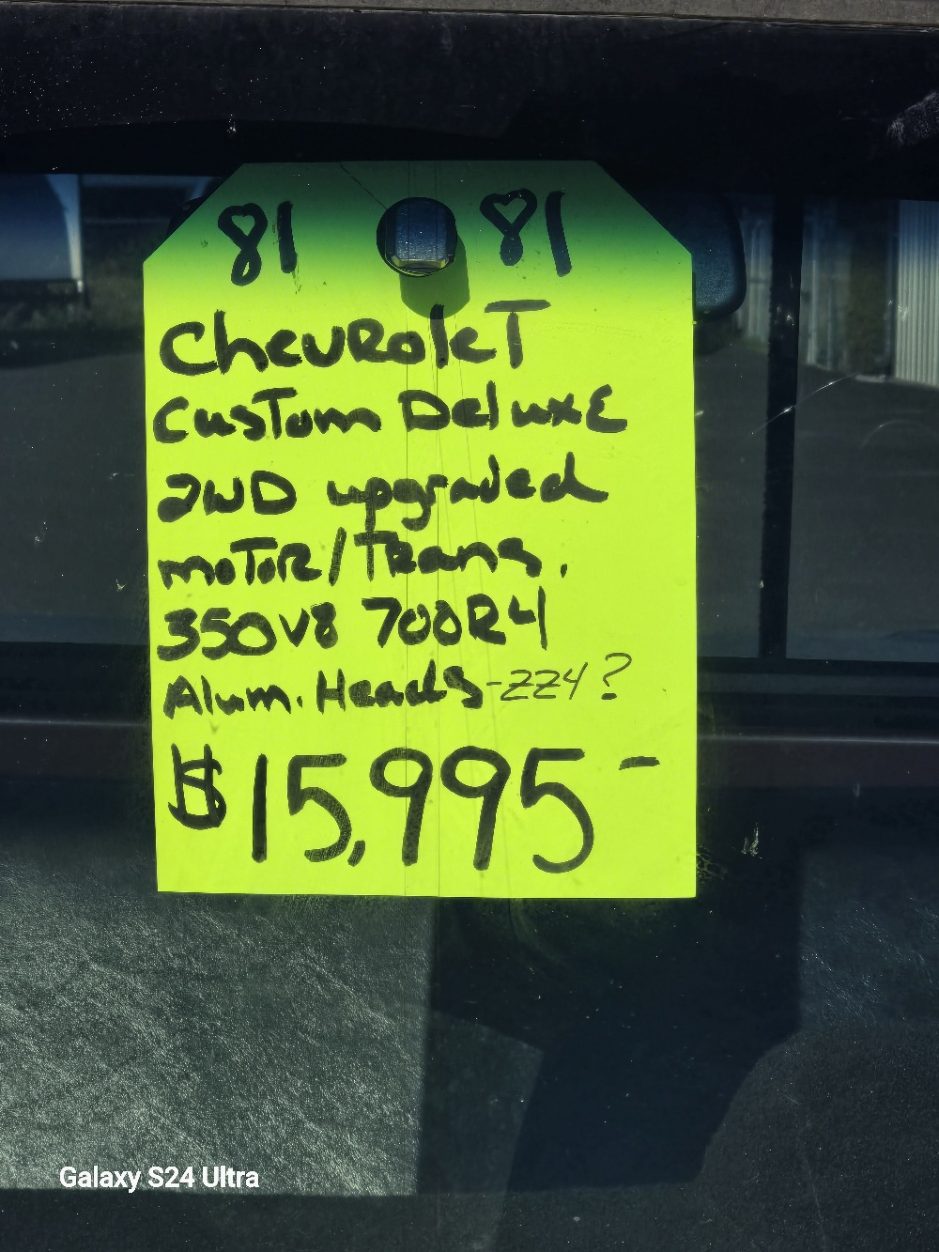 81 81
Chevrolet
Custom Deluxe
2WD upgraded
motor/Trans.
350V8 700R4
Alum. Heads -ZZ4?
$15,995-
Galaxy S24 Ultra